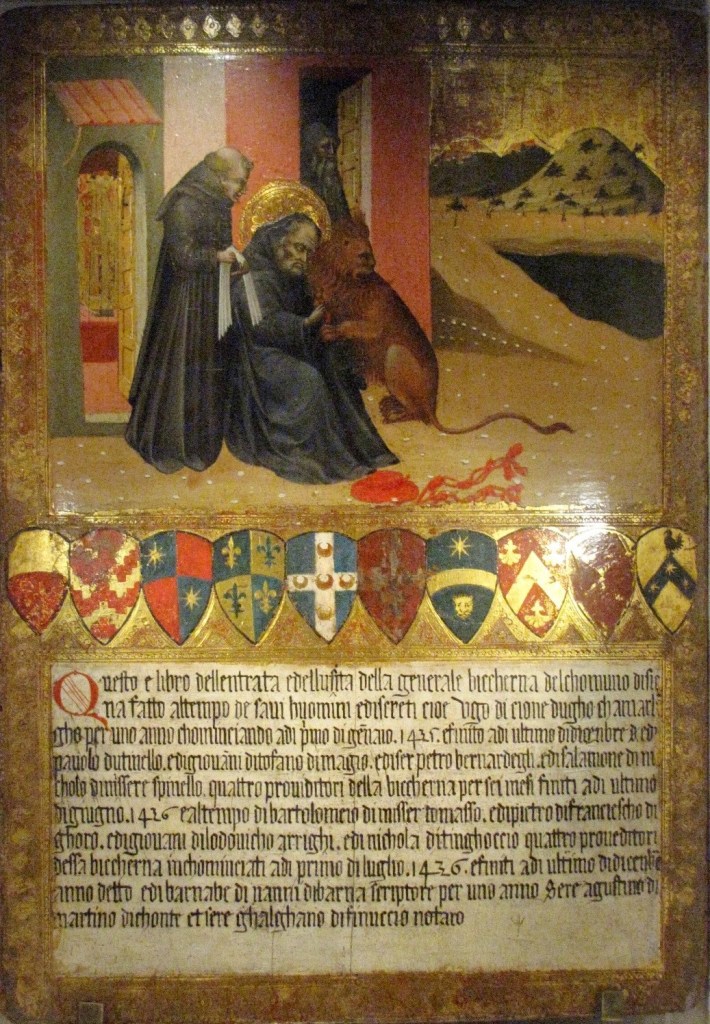 Questo e libro dellentrata edellusita della generale biccherna delchomuno disie
na fatto altempo de savi huomini ediscreti cioe Ugo di cione dugho chamar
per uno anno chominciando adi pmo di gennaio. 1425. efinito adi ultimo didicenbre
pavolo dutinello. edigiovani ditofano di magio. ediser petro bernardegli. edisalamone di ni
cholo dimissere spinello. quattro providitori della biccherna per sei mesi finiti adi ultimo
digiugno. 1426 ealtempo dibartolomeio di misser tomasso. edipietro difranciescho di
ghoro. edigiovani dilodovicho arrighi. edi nichola ditinghoccio quattro proveditori
dessa biccherna inchominciati adi primo di luglio. 1426. efiniti adi ultimo didicenbre
anno detto edibarnabe di nanni dibarna scriptore per uno anno Sere agustino di
martino dichonte et sere ghalghano difinuccio notaro